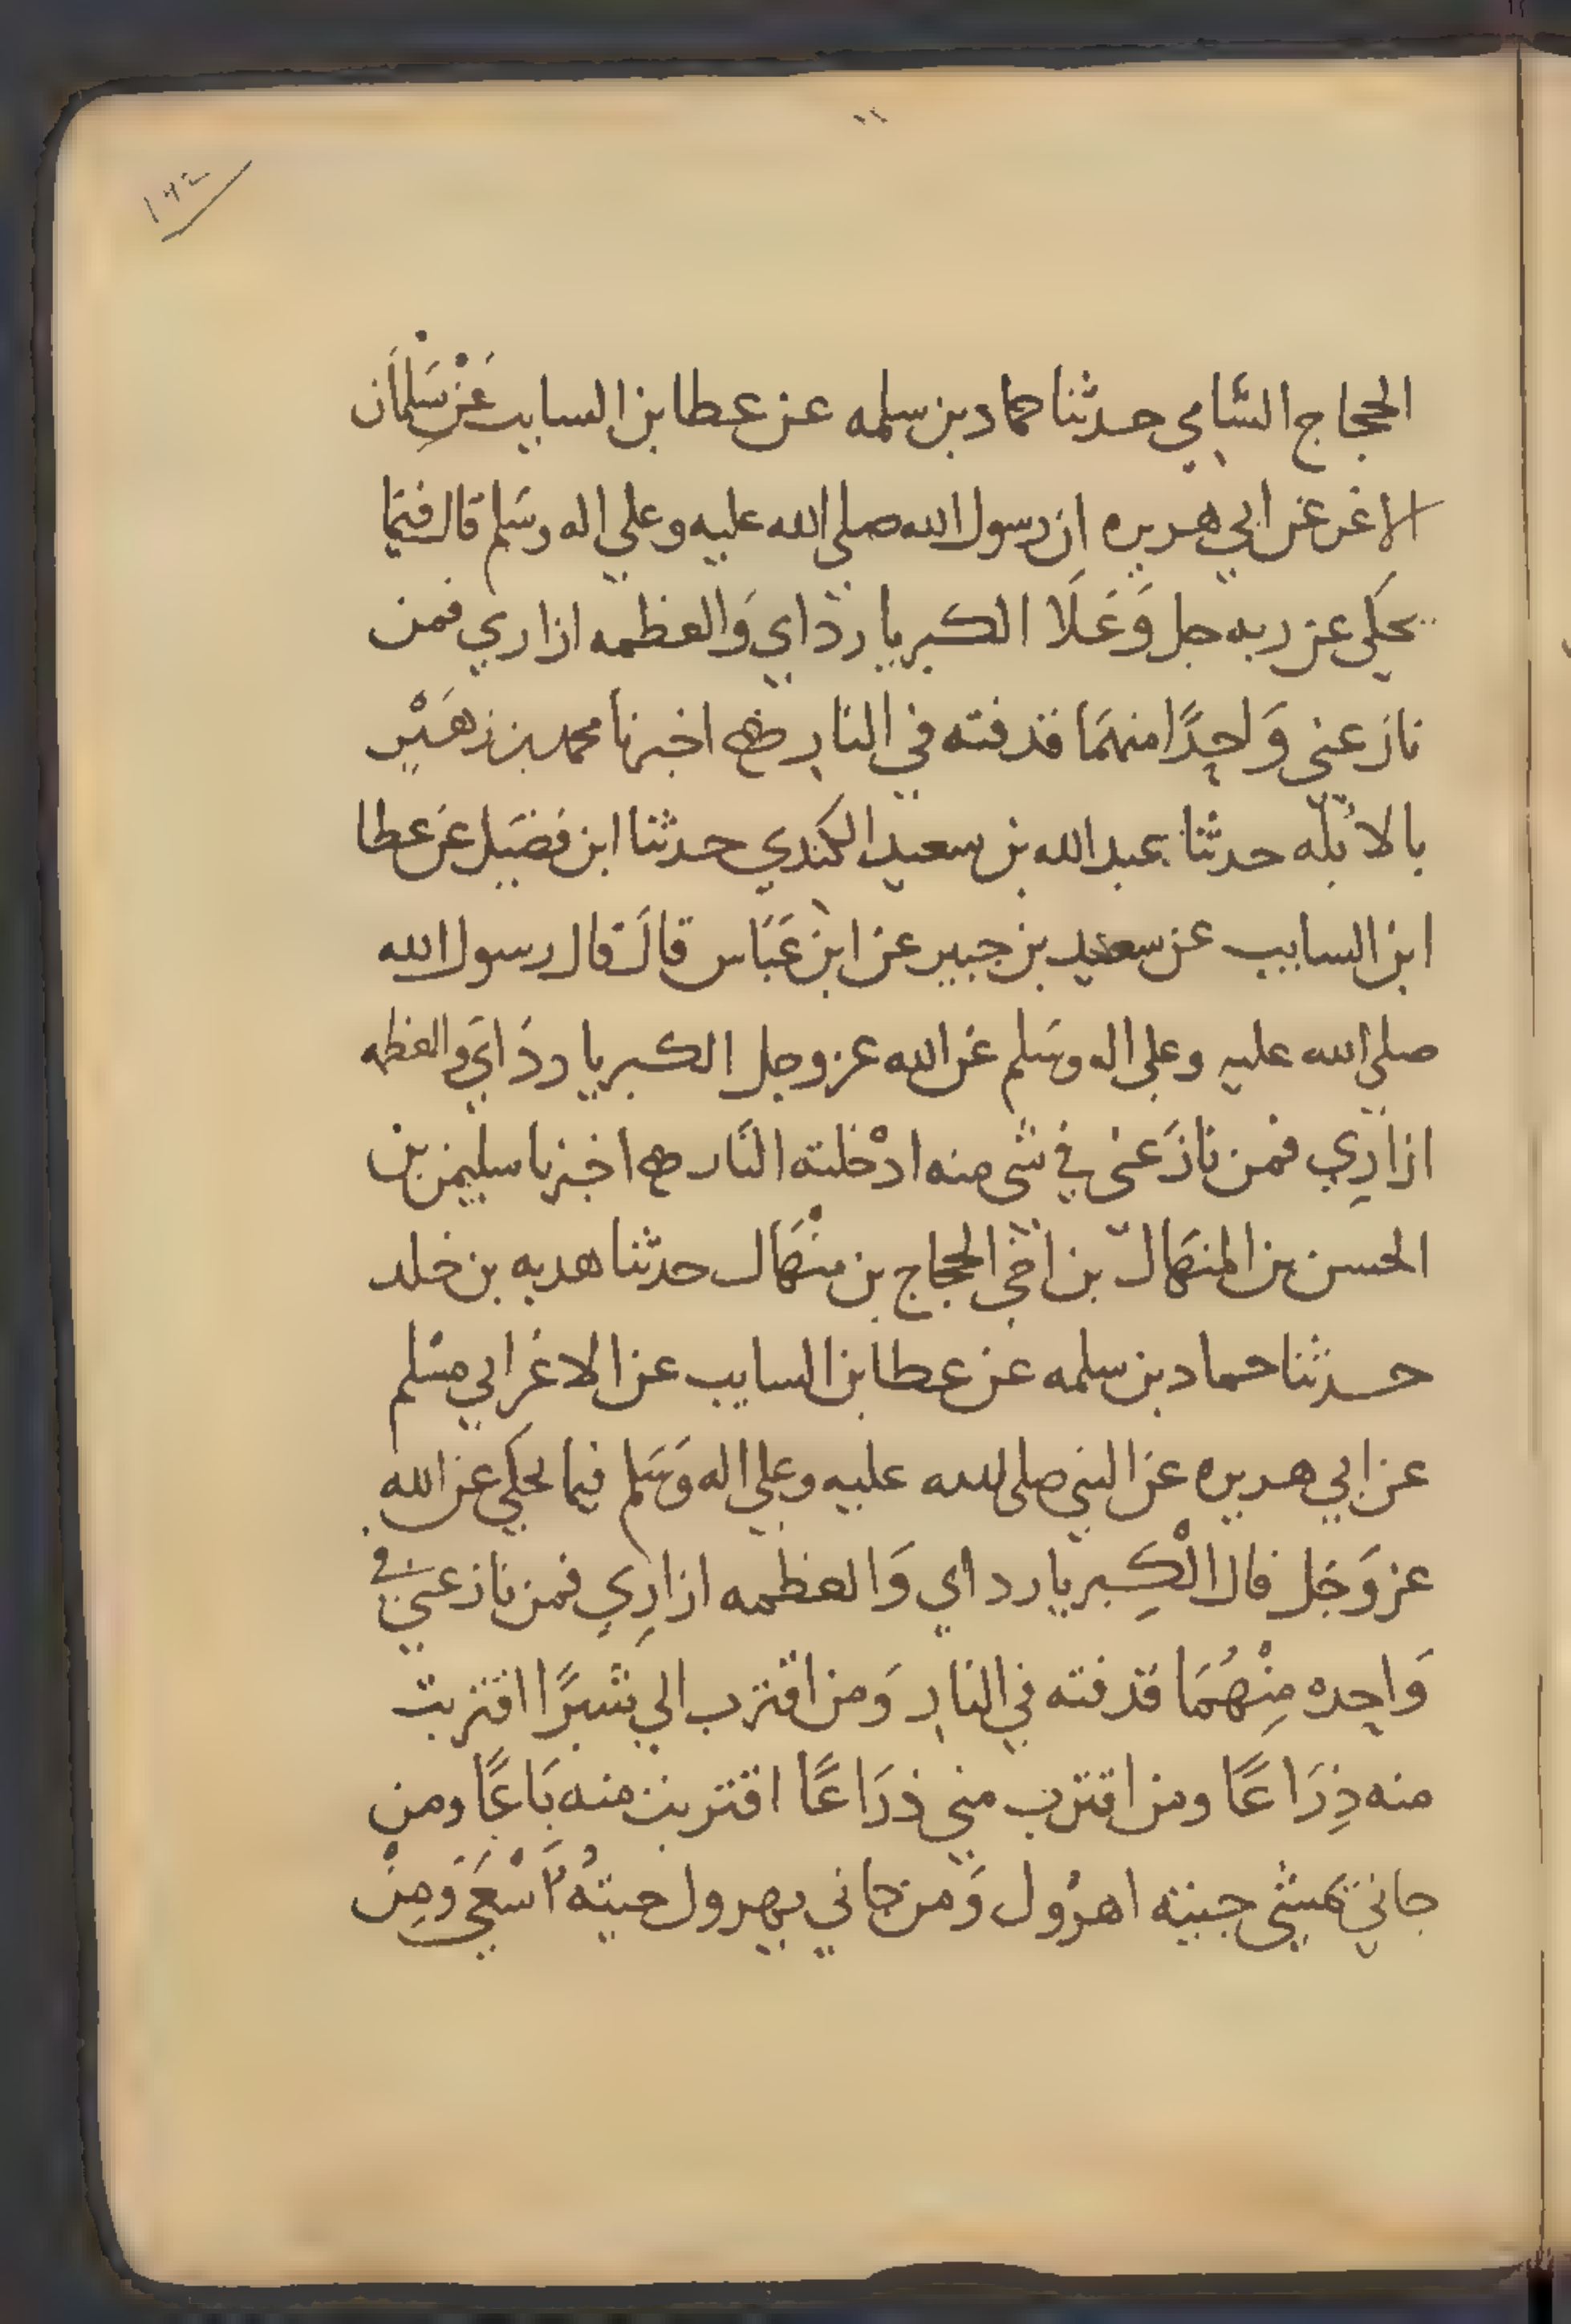 ١١
الحجاج السَّامي حدثنا حماد بن سلمه عن عطا بن السايب عَنْ سَلْمَان
الاغر عن ابي هريره ان رسول الله صلى الله عليه وعلي اله وسَلم قال فيمَا
يحكَي عن ربه جل وَعَلَا الكبريا رداي وَالعظمه ازاري فمن
نازعني وَاحِدًا منهمَا قذفته في النار اخبرنا محمد بن زهَيْر
بالابُلّه حدثنا عبد الله بن سعيد الكندي حدثنا ابن فضَيل عن عطا
ابن السايب عن سعيد بن جبير عن ابن عَبَاس قال قال رسول الله
صلي الله عليه وعلى اله وسَلم عَن الله عز وجل الكبريا ردَايَ والعظمه
ازارِي فمن نازَعني في شى منه ادْخلته النَار اخبرنا سليمن بن
الحسن بن المنهَال بن اخي الحجاج بن منْهَال حدثنا هدبه بن خلد
حدثنا حماد بن سلمه عن عطا بن السايب عن الاغر ابي مسْلم
عن ابي هريره عن النبي صلى الله عليه وعلي اله وَسَلم فيما يحكي عن الله
عز وَجَل قال الْكِبريا رداي وَالعظمه ازارِي فمن نازعني في
وَاحِده مِنْهُمَا قذفته في النار وَمن اقترب الي شبرًا اقتربت
منه ذِرَاعًا ومن اقترب مني ذرَاعًا اقتربت منه بَاعًا ومن
جاني يمشى جيته اهرُول وَمن جاني يهرول جيتهُ اَسْعَي وَمِنْ